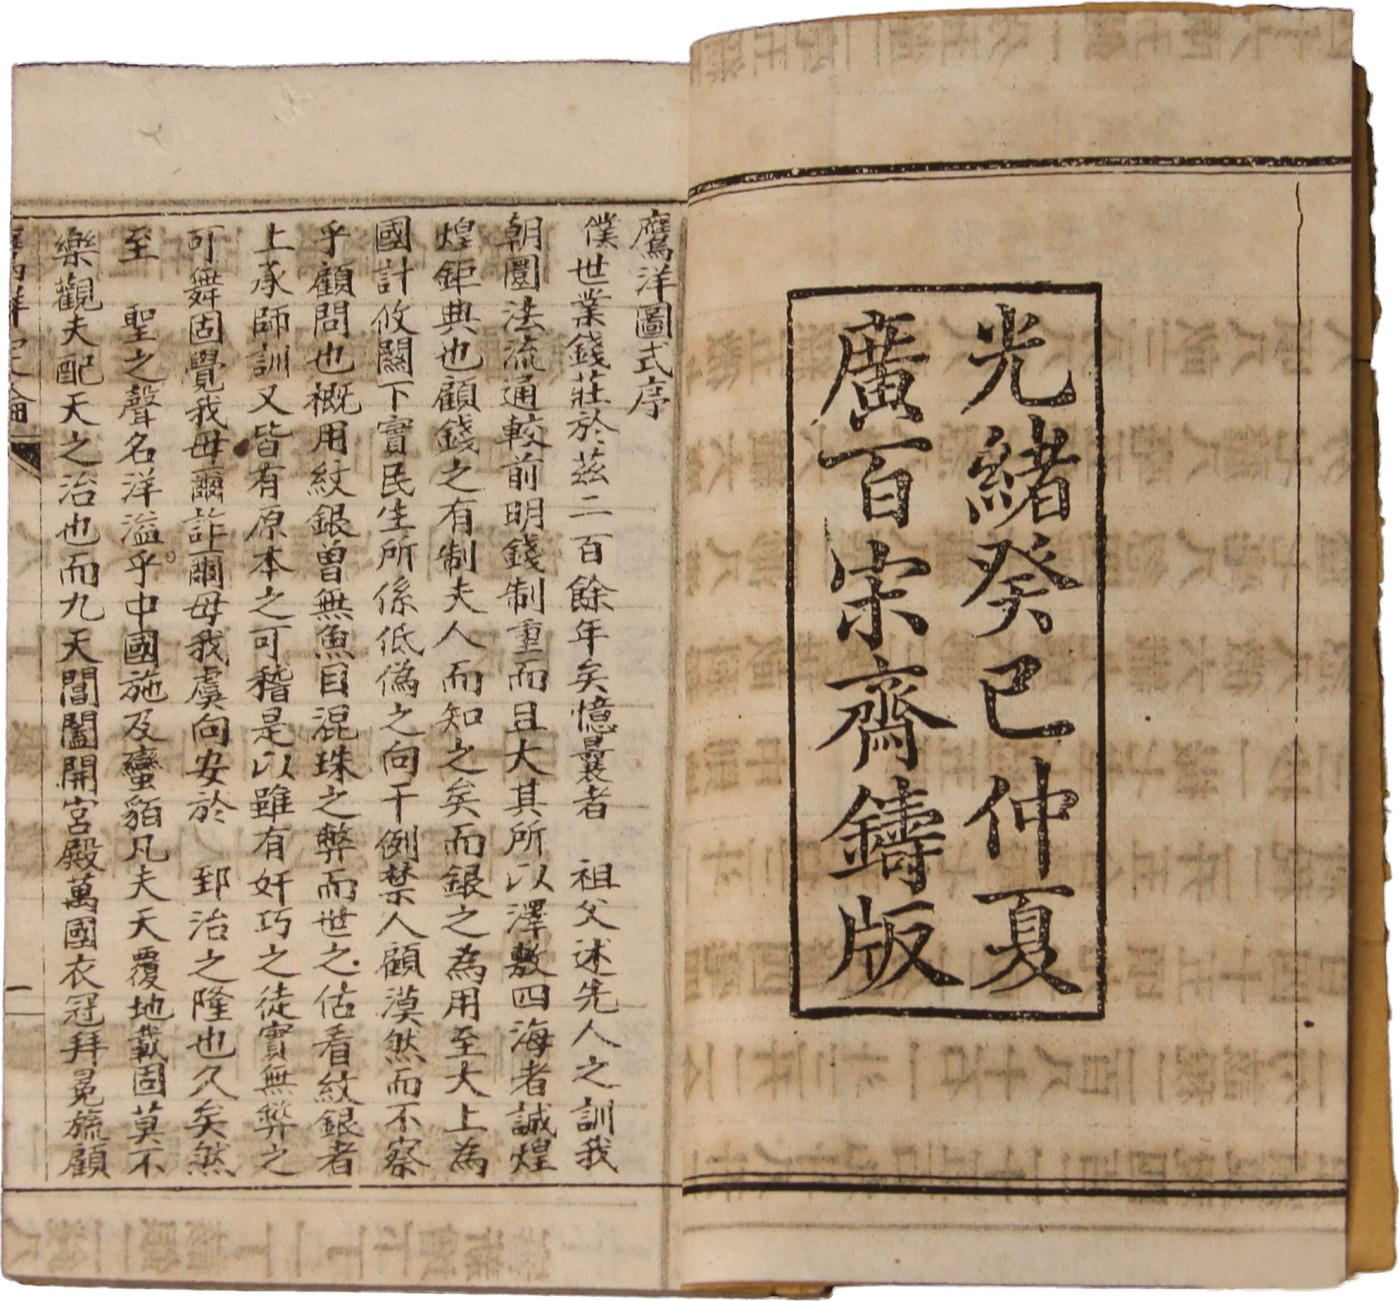 光緒癸巳仲夏
廣百宋齋鑄版
鷹洋圖式序
僕世業錢莊於茲二百餘年矣憶曩者 祖父述先人之訓我
朝圜法流通較前明錢制重而且大其所以澤敷四海者誠煌
煌鉅典也顧錢之有制夫人而知之矣而銀之為用至大上為
國計攸關下實民生所係低偽之向干例禁人顧漠然而不察
乎顧問也概用紋銀曾無魚目混珠之弊而世之估看紋銀者
上承師訓又皆有原本之可稽是以雖有奸巧之徒實無弊之
可舞固覺我毋爾詐爾毋我虞向安於 郅治之隆也久矣然
至 聖之聲名洋溢乎中國施及蠻貊凡夫天覆地載固莫不
樂觀夫配天之治也而九天閶闔開宮殿萬國衣冠拜冕旒顧
一